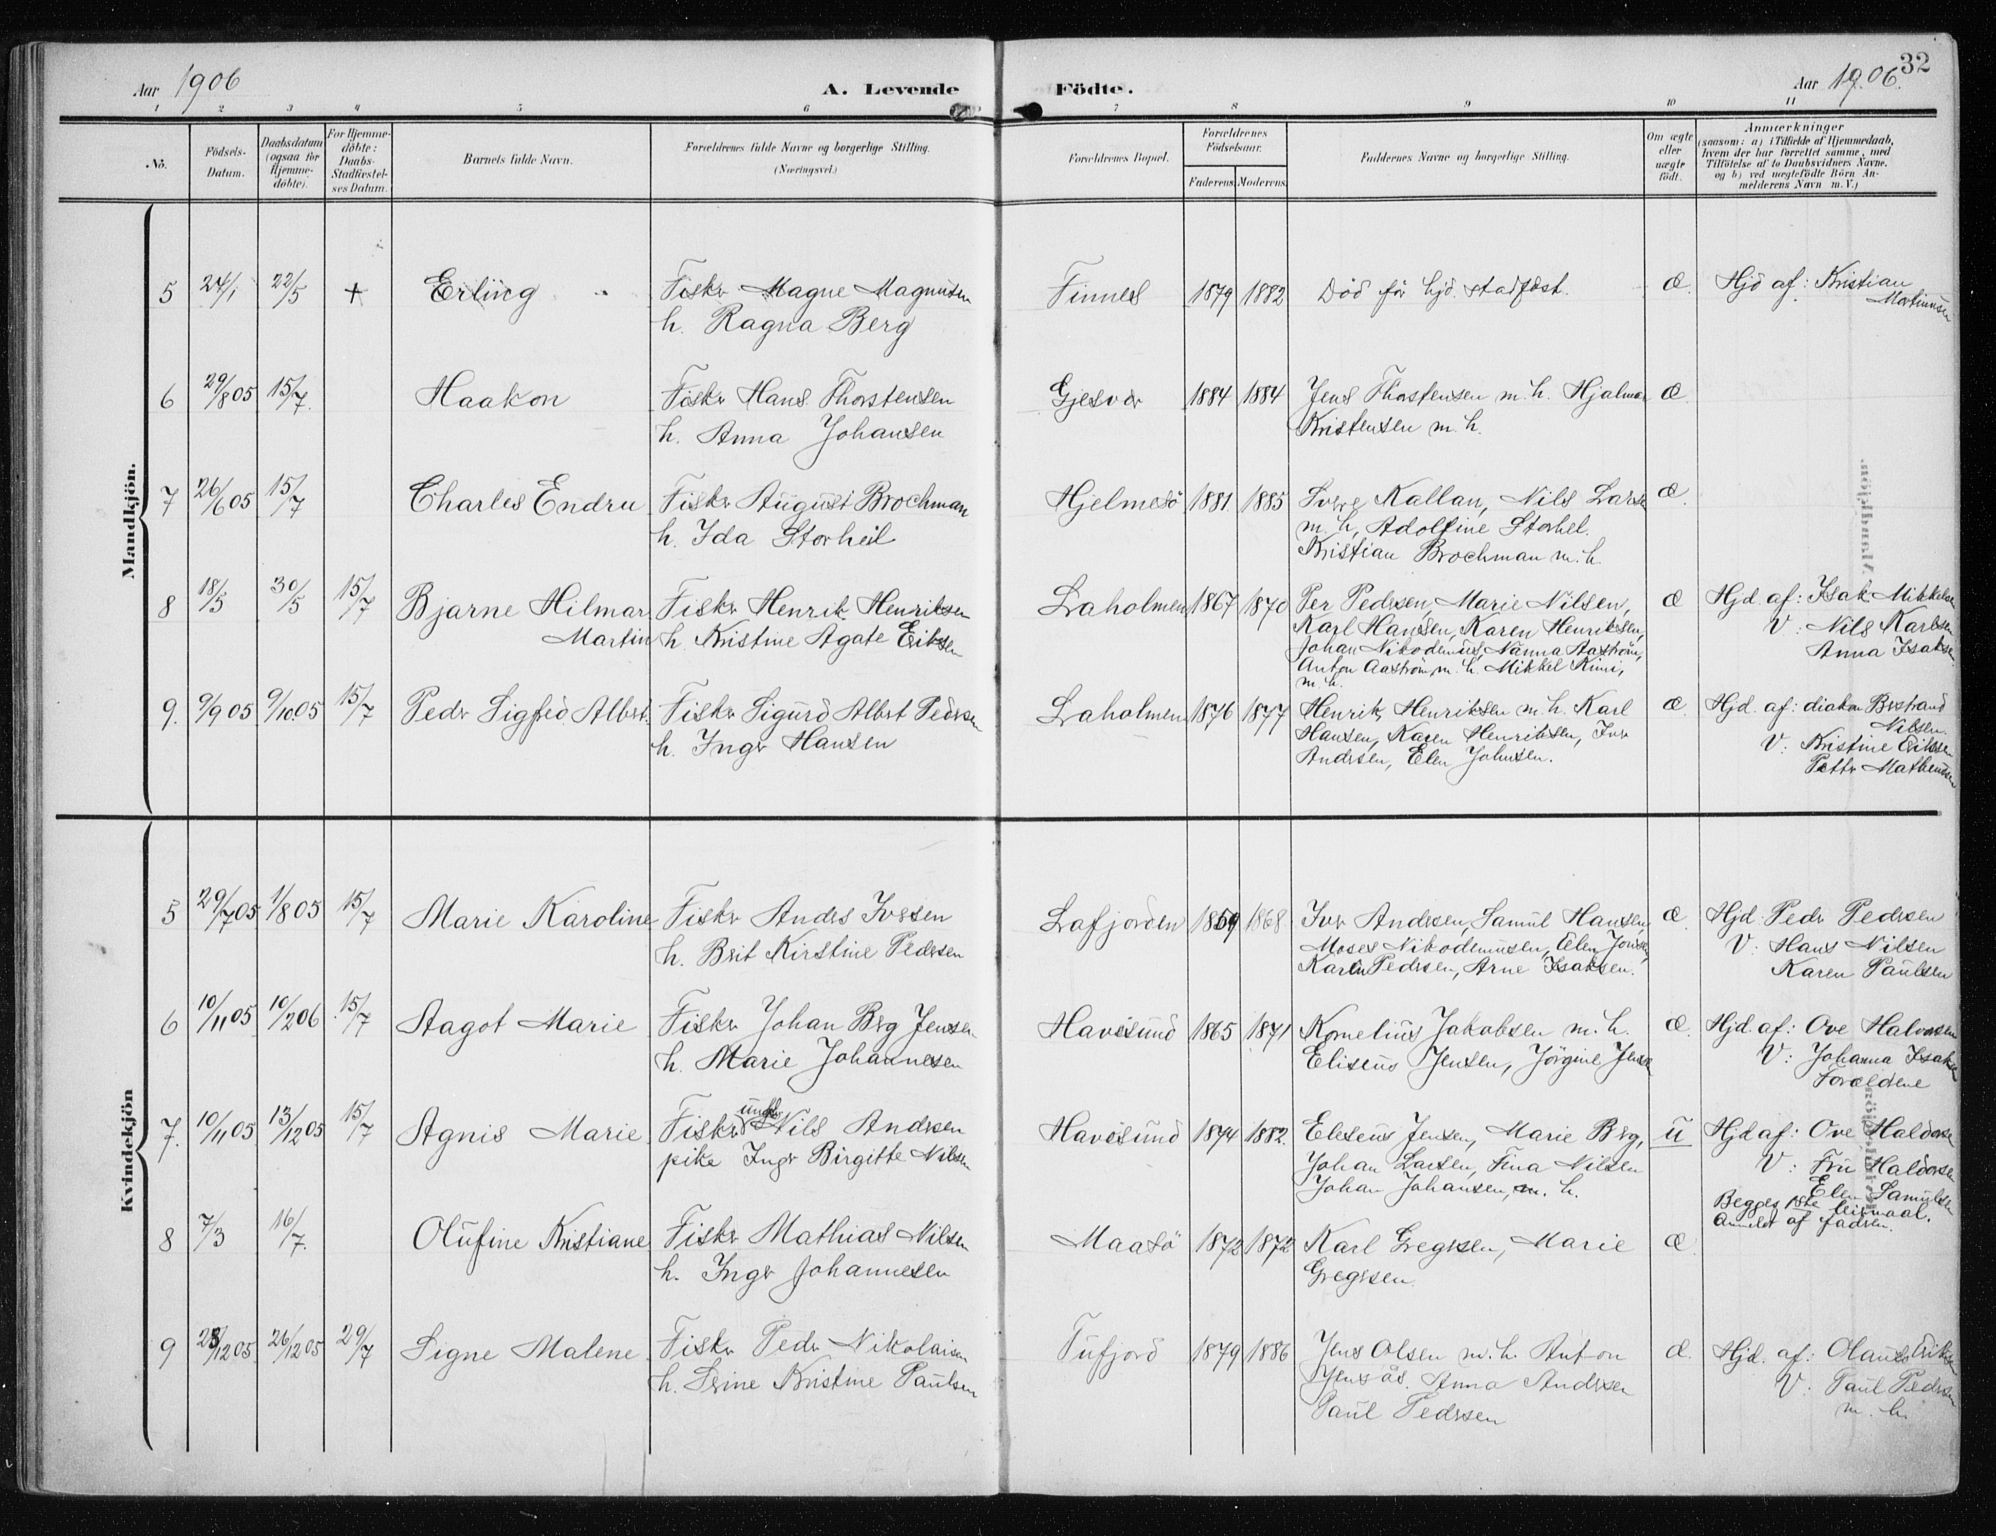 Aar 1906 A. Levende Födte. Aar 1906. 32
1 2 3 4 5 6 7 8 9 10 11
Nö. Födsels-Datum. Daabsdatum (ogsaa for Hjemme-döbte). For Hjemme-döbte: Daabs-Stadfæstel-ses Datum. Barnets fulde Navn. Forældrenes fulde Navne og borgerlige Stilling. (Næringsvei.) Forældrenes Bopæl. Forældrenes Födselsaar. Faderens. Moderens. Faddernes Navne og borgerlige Stilling. Om ægte eller uægte födt. Anmærkninger (saasom: a) i Tilfælde af Hjemmedaab, hvem der har forrettet samme, med Tilföielse af to Daabsvidners Navne, og b) ved uægtefödte Börn An-melderens Navn m. V.)
Mandkjön.
5 24/1 22/5 + Erling Fisker Magne Magnusen Finnes 1879 1882 Död før hjd. stadfæst. æ. Hjd af: Kristian
h. Ragna Berg Martinusen
6 29/8 05 15/7. Haakon Fisker Hans Thorstensen Gjesvær 1884 1884 Jens Thorstensen m. h. Hjalmar æ
h. Anna Johansen Kristensen m. h.
7 26/6 05 15/7 Charles Endru Fisker August Brochman Hjelmesö 1881 1885 Sverre Kallan, Nils Larsen æ.
h. Ida Storheil m. h, Adolfine Storhel.
Kristian Brochman m. h.
8 18/5 30/5 15/7 Bjarne Hilmar Fisker Henrik Henriksen Laholmen 1867 1870 Per Pedersen, Marie Nilsen, æ Hjd af: Isak Mikkelsen
Martin h Kristine Agate Eriksen Karl Hansen, Karen Henriksen, V: Nils Karlsen
Johan Nikodemus, Nanna Aaström, Anna Isaksen
Anton Aaström, m. h. Mikkel Kimi,
m. h.
9. 9/9 05 9/10.05 15/7 Peder Sigfred Albert. Fisker Sigurd Albert Pedersen Laholmen 1876 1877 Henrik Henriksen m. h. Karl æ. Hjd. af: diakon Berstrand
h. Inger Hansen Hansen, Karen Henriksen, Iver Nilsen.
Andersen, Elen Johnsen. V: Kristine Eriksen
Petter Matheusen
Kvindekjön
5 29/7 05 1/8 05 15/7 Marie Karoline Fisker Anders Iversen Lafjorden 1869 1868 Iver Andersen, Samul Hansen, æ. Hjd. Peder Pedersen
h. Brit Kirstine Pedersen Moses Nikodemusen, Elen V: Hans Nilsen
Karen Pedersen, Arne Isaksen. Karen Paulsen
6 10/11 05 10/2 06 15/7 Aagot Marie Fisker Johan Berg Jensen Havösund 1865 1871 Kornelius Jakobsen m. h. æ. Hjd. af: Ove Halvorsen
h. Marie Johannesen Eliseus Jensen, Jörgine Jensen V: Johanna Isaksen
Forældrene
7. 10/11 05 13/12 05 15/7 Agnis Marie Fisker ungkar Nils Andersen Havösund 1874 1882. Eleseus Jensen, Marie Berg, u Hjd af: Ove Haldorsen
pike Inger Birgitte Nilsen Johan Larsen, Fina Nilsen V: Fru Haldorsen
Johan Johansen, m. h. Elen Samuelsen
Begges 1ste leiermaal.
Anmeldt af faderen.
8 7/3 16/7. Olufine Kristiane Fisker Mathias Nilsen Maasö 1872 1872 Karl Gregersen, Marie æ
h. Inger Johannesen Gregersen.
9 28/12 05. 26/12 05 29/7 Signe Malene Fisker Peder Nikolaisen Tufjord 1879 1886 Jens Olsen m. h. Anton æ. Hjd. af: Olaus Eriksen
h. Serine Kristine Paulsen Jensås. Anna Andersen V: Paul Pedersen
Paul Pedersen m. h.